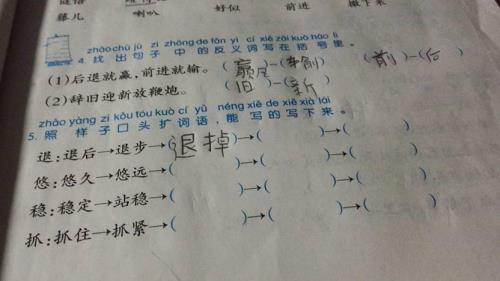 谜语
藤儿 喇叭 好似 前进 撒下来
zhǎo chū jù zi zhōng de fǎn yì cí xiě zài kuò hào lǐ
4. 找出句子中的反义词写在括号里。
(1)后退就赢,前进就输。( 赢 )-( ) ( 前 )-( 后 )
(2)辞旧迎新放鞭炮。( 旧 )-( 新 )
zhào yàng zi kǒu tóu kuò cí yǔ néng xiě de xiě xià lái
5. 照样子口头扩词语,能写的写下来。
退:退后→退步→( 退掉 )→( )→( )
悠:悠久→悠远→( )→( )→( )
稳:稳定→站稳→( )→( )→( )
抓:抓住→抓紧→( )→( )→( )